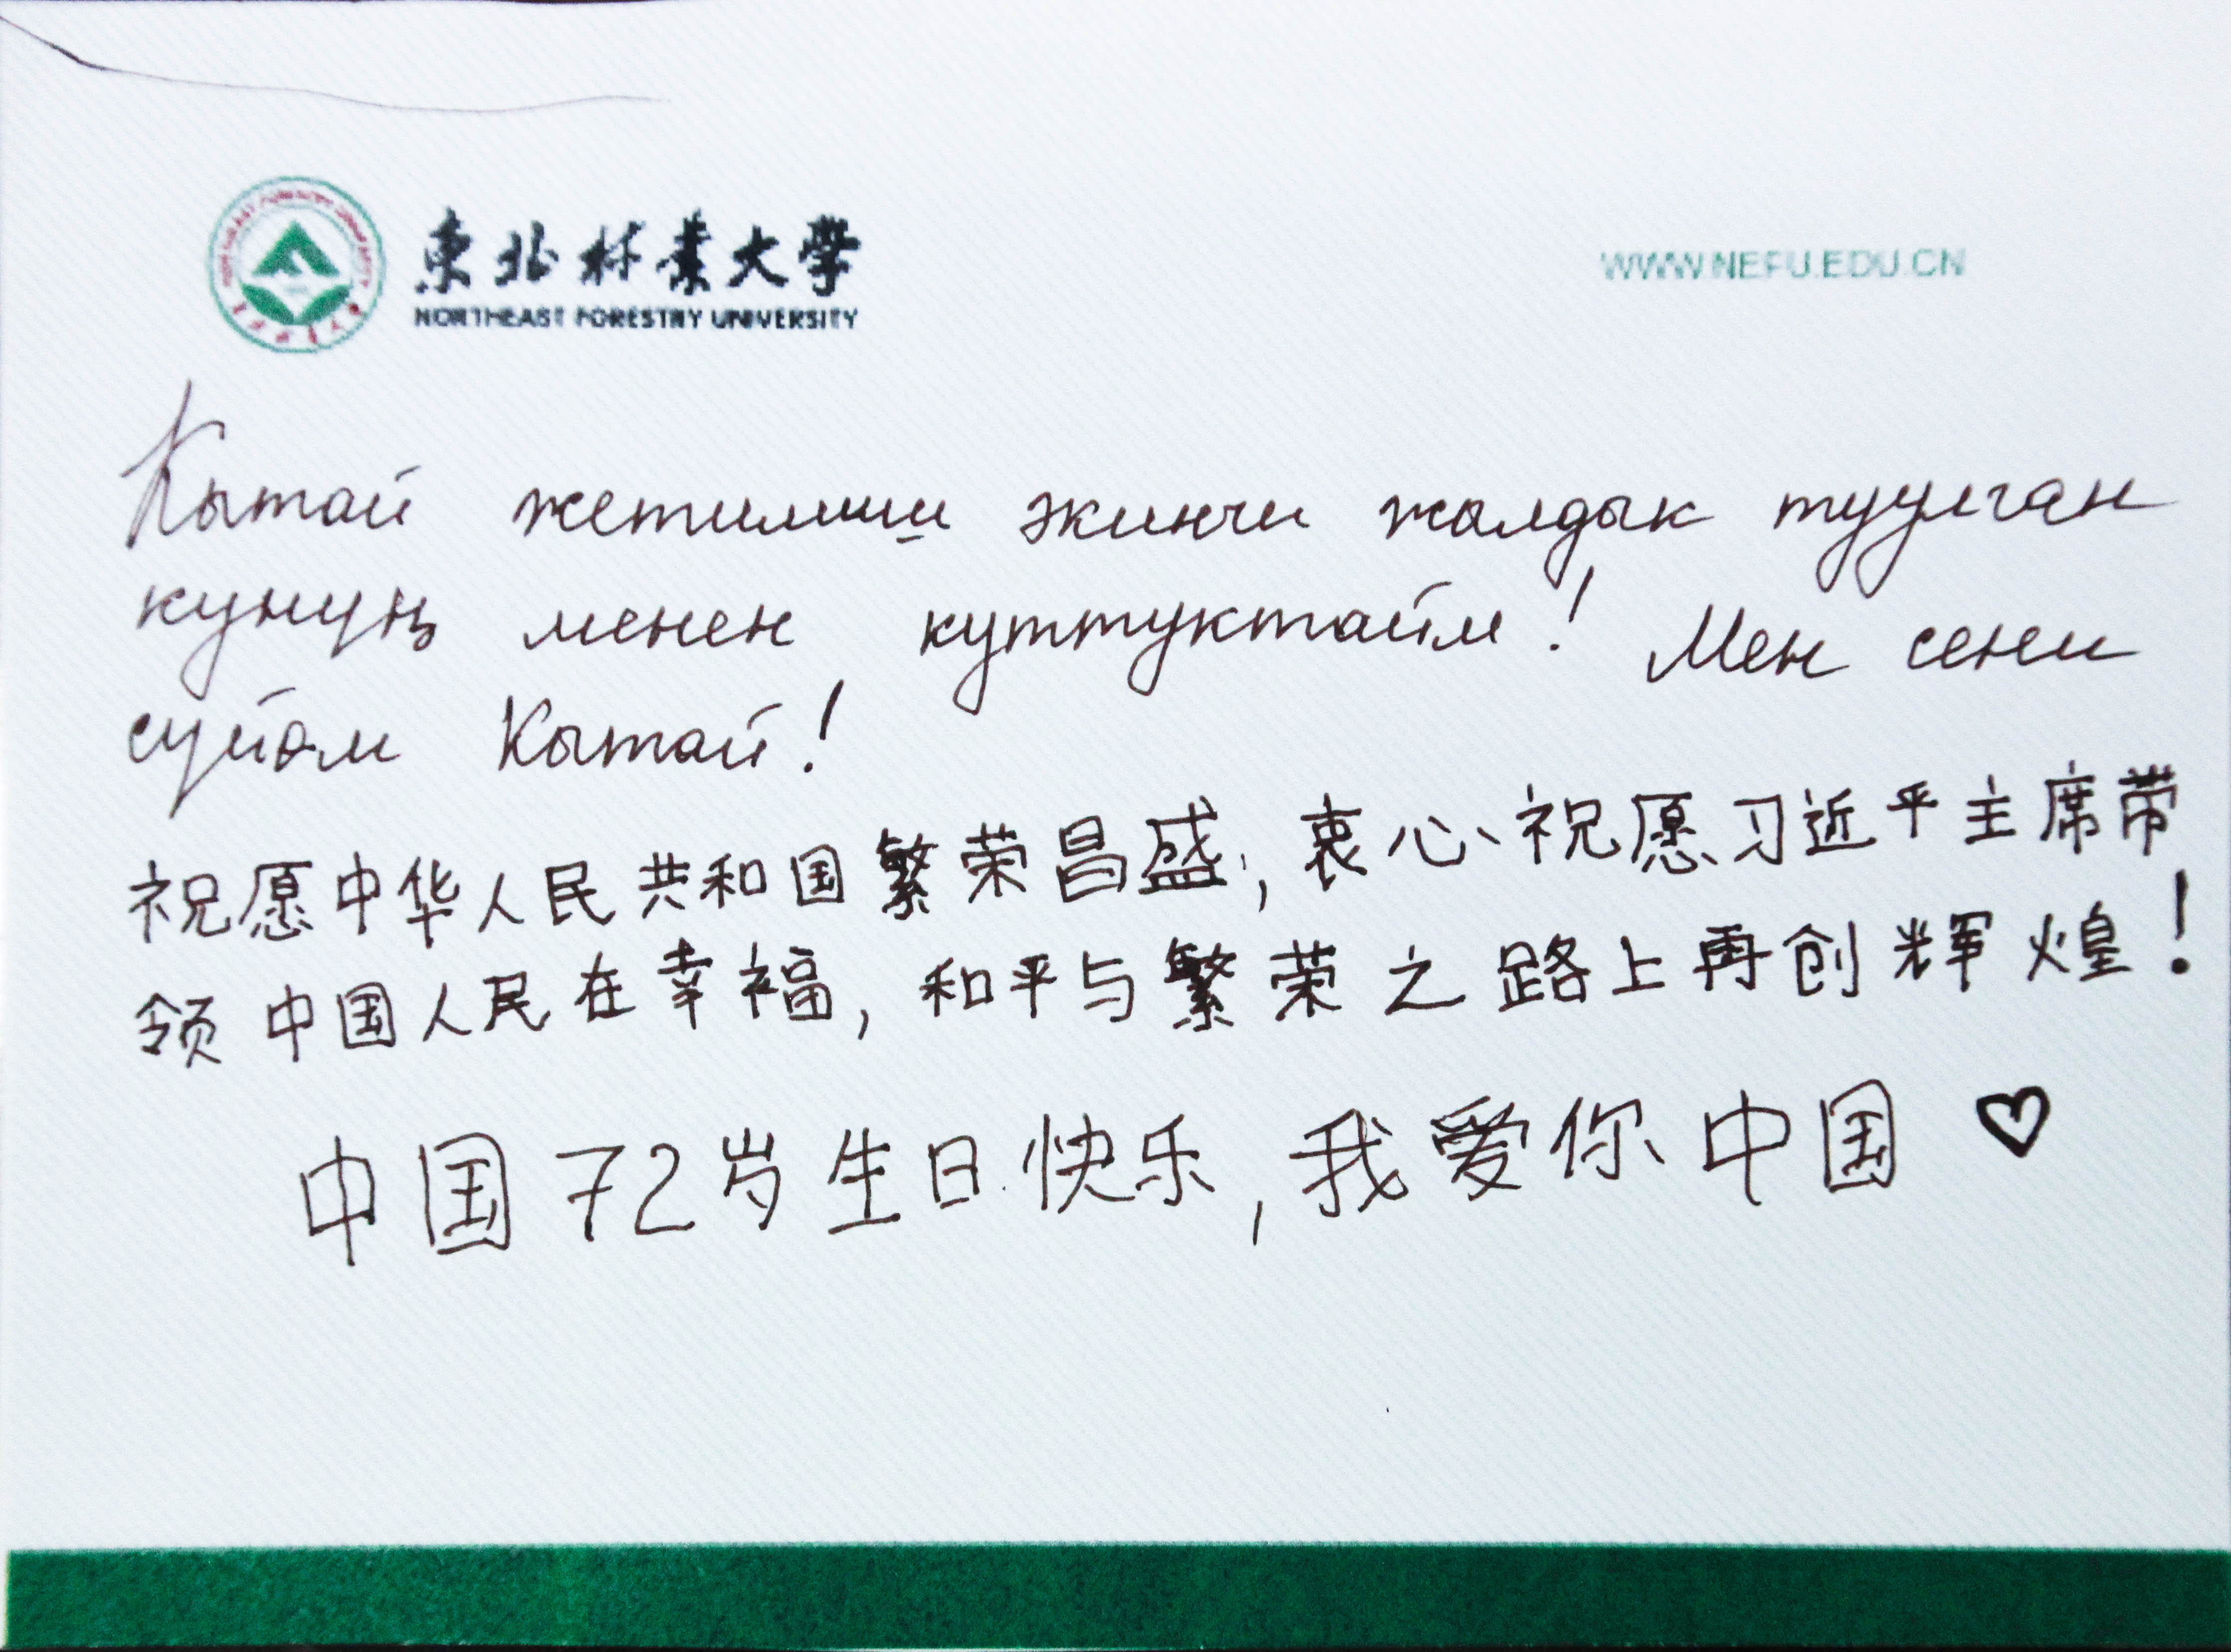 東北林業大學
NORTHEAST FORESTRY UNIVERSITY
WWW.NEFU.EDU.CN
Кытай жетимиш экинчи жылдык туулган
күнүң менен куттуктайм! Мен сени
сүйөм Кытай!
祝愿中华人民共和国繁荣昌盛, 衷心祝愿习近平主席带
领中国人民在幸福, 和平与繁荣之路上再创辉煌!
中国72岁生日快乐, 我爱你中国♡